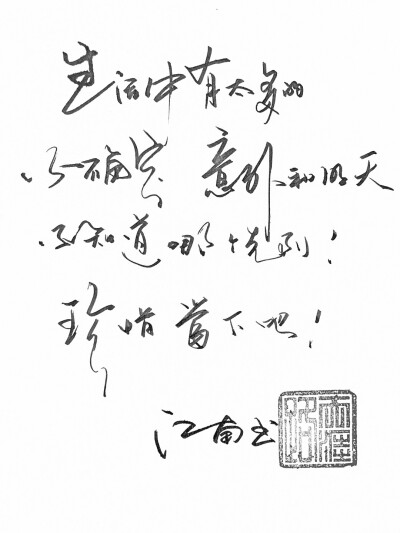 生活中有太多的
不确实 意外和明天
不知道哪个先到！
珍惜當下吧！
江南书